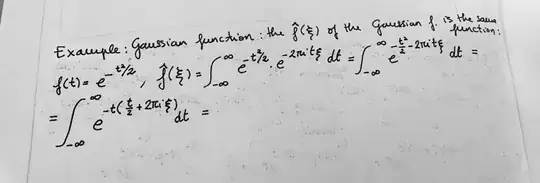 Example: Gaussian function: the f̂(ξ) of the Gaussian f. is the same function:
f(t) = e^{-t²/2}, f̂(ξ) = ∫_{-∞}^{∞} e^{-t²/2} · e^{-2πitξ} dt = ∫_{-∞}^{∞} e^{-t²/2 - 2πitξ} dt =
= ∫_{-∞}^{∞} e^{-t(t/2 + 2πiξ)} dt =